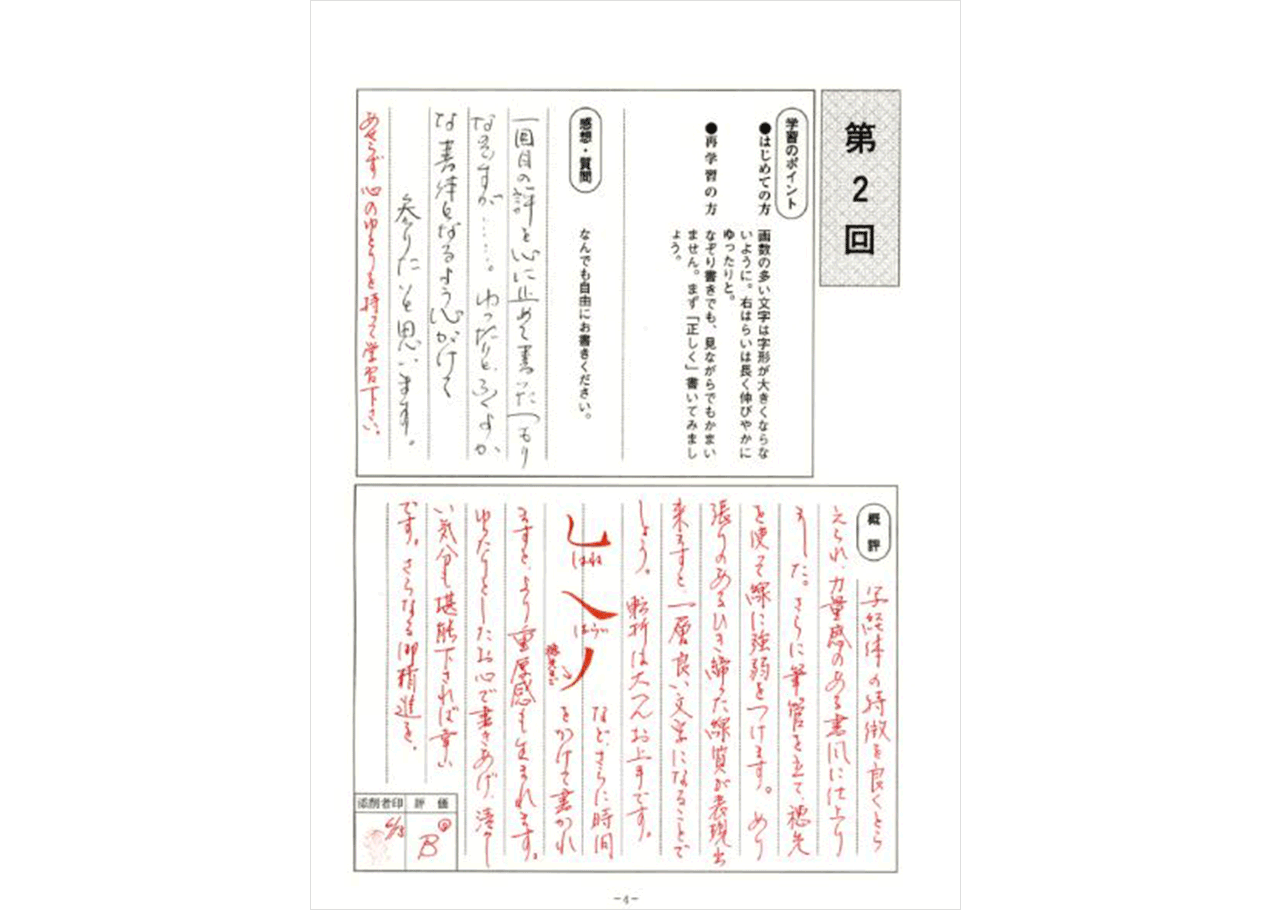 第2回
学習のポイント
●はじめての方
画数の多い文字は字形が大きくならな
いように。右はらいは長く伸びやかに
ゆったりと。
●再学習の方
なぞり書きでも、見ながらでもかまい
ません。まず「正しく」書いてみまし
ょう。
感想・質問
なんでも自由にお書きください。
一回目の評を心に止めて書いたつもり
なのですが……。ゆったりと、ふくよか
な書体となるよう心がけて
参りたいと思います。
あせらず心のゆとりを持って学習下さい。
概評
写経体の特徴を良くとら
えられ、力量感のある書風に仕上り
ました。さらに筆管を立て、穂先
を使って線に強弱をつけます。
張りのあるひき締った線質が表現出
来ますと、一層良い文字になることで
しょう。転折は大へんお上手です。
はね
はらい
など、さらに時間
をかけて書かれ
ますと、より重厚感も生まれます。
ゆったりとしたお心で書きあげ、清々し
い気分も堪能下されば幸い
です。さらなる御精進を。
添削者印
評価
B
-4-